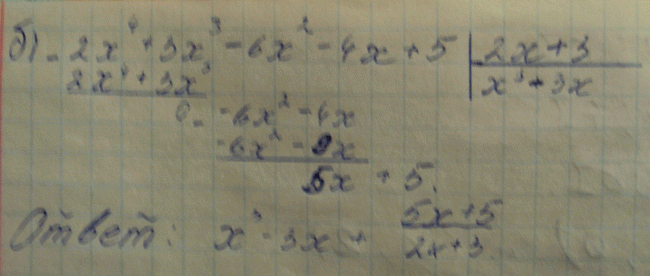 б) - 2x⁴ + 3x³ - 6x² - 4x + 5 | 2x + 3
2x⁴ + 3x³ | x³ - 3x
0 - -6x² - 4x
-6x² - 9x
5x + 5
Ответ: x³ - 3x + (5x+5)/(2x+3)